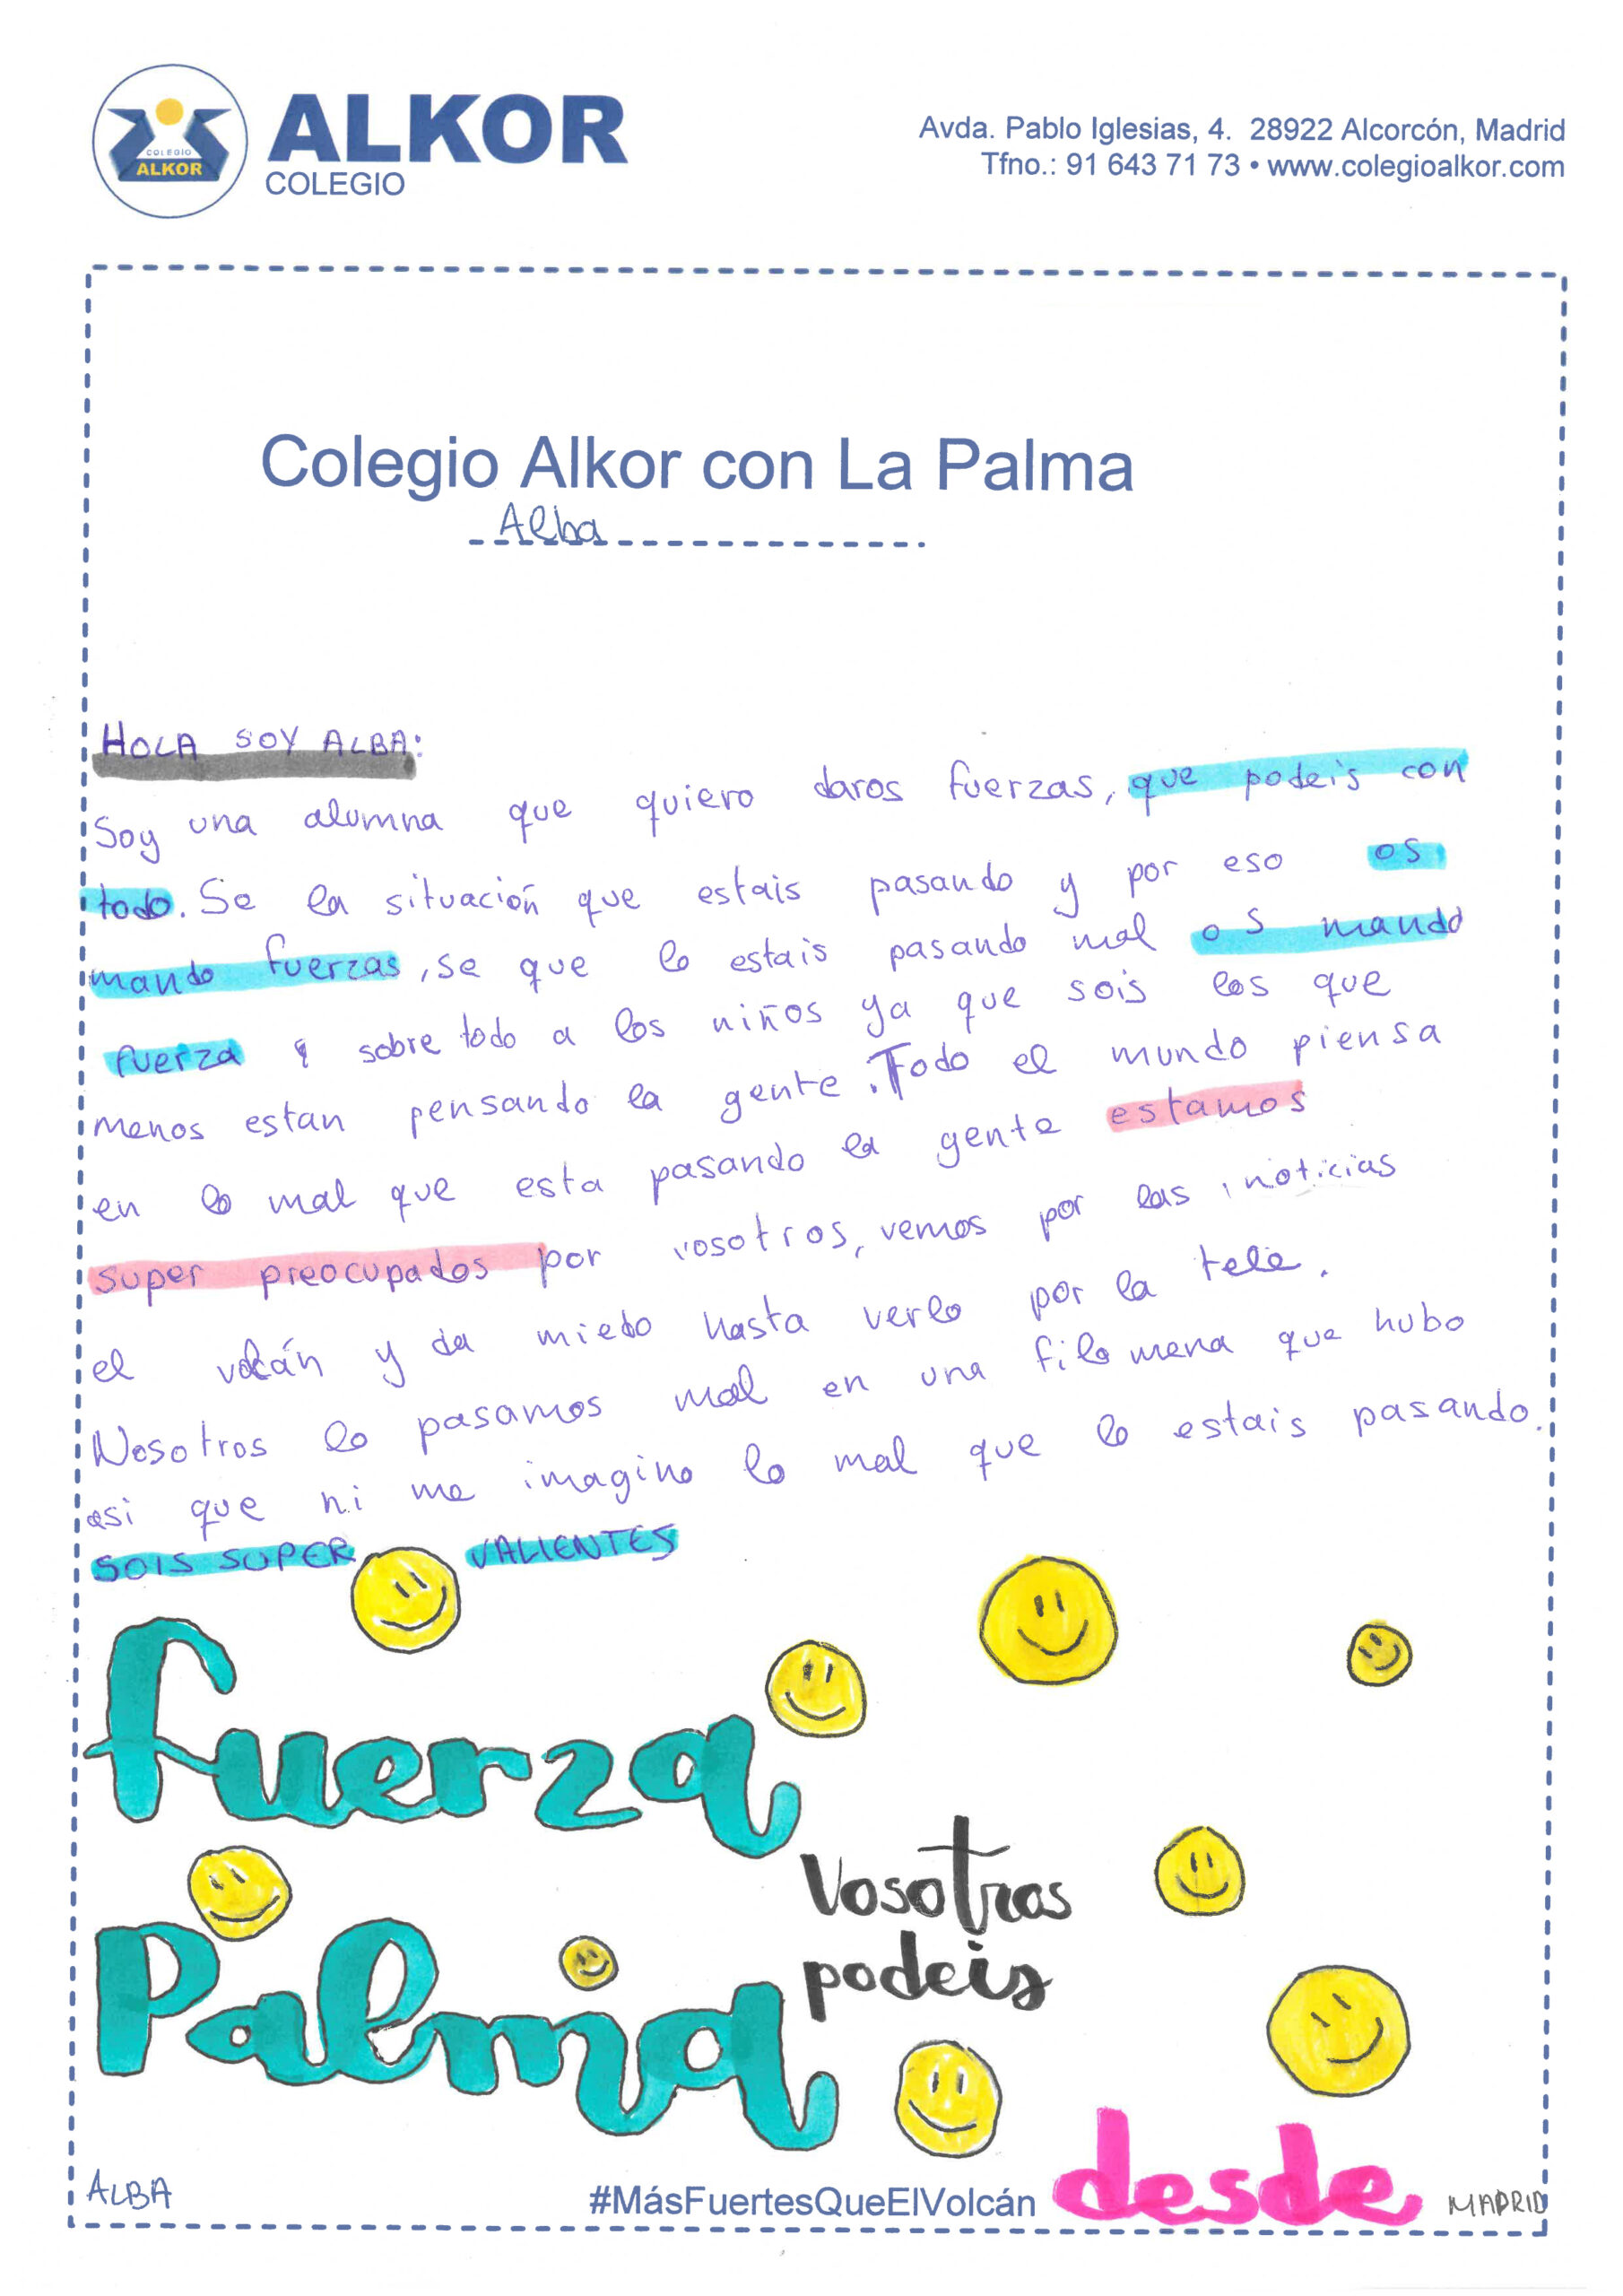 COLEGIO
ALKOR
ALKOR
COLEGIO
Avda. Pablo Iglesias, 4. 28922 Alcorcón, Madrid
Tfno.: 91 643 71 73 • www.colegioalkor.com
Colegio Alkor con La Palma
Alba
HOLA SOY ALBA:
Soy una alumna que quiero daros fuerzas, que podeis con
todo. Se la situación que estais pasando y por eso os
mando fuerzas, se que lo estais pasando mal os mando
fuerza y sobre todo a los niños ya que sois los que
menos estan pensando la gente. Todo el mundo piensa
en lo mal que esta pasando la gente estamos
super preocupados por vosotros, vemos por las noticias
el volcán y da miedo hasta verlo por la tele.
Nosotros lo pasamos mal en una filomena que hubo
asi que ni me imagino lo mal que lo estais pasando.
SOIS SUPER VALIENTES
fuerza
Vosotros
podeis
Palma
ALBA
#MásFuertesQueElVolcán
desde MADRID